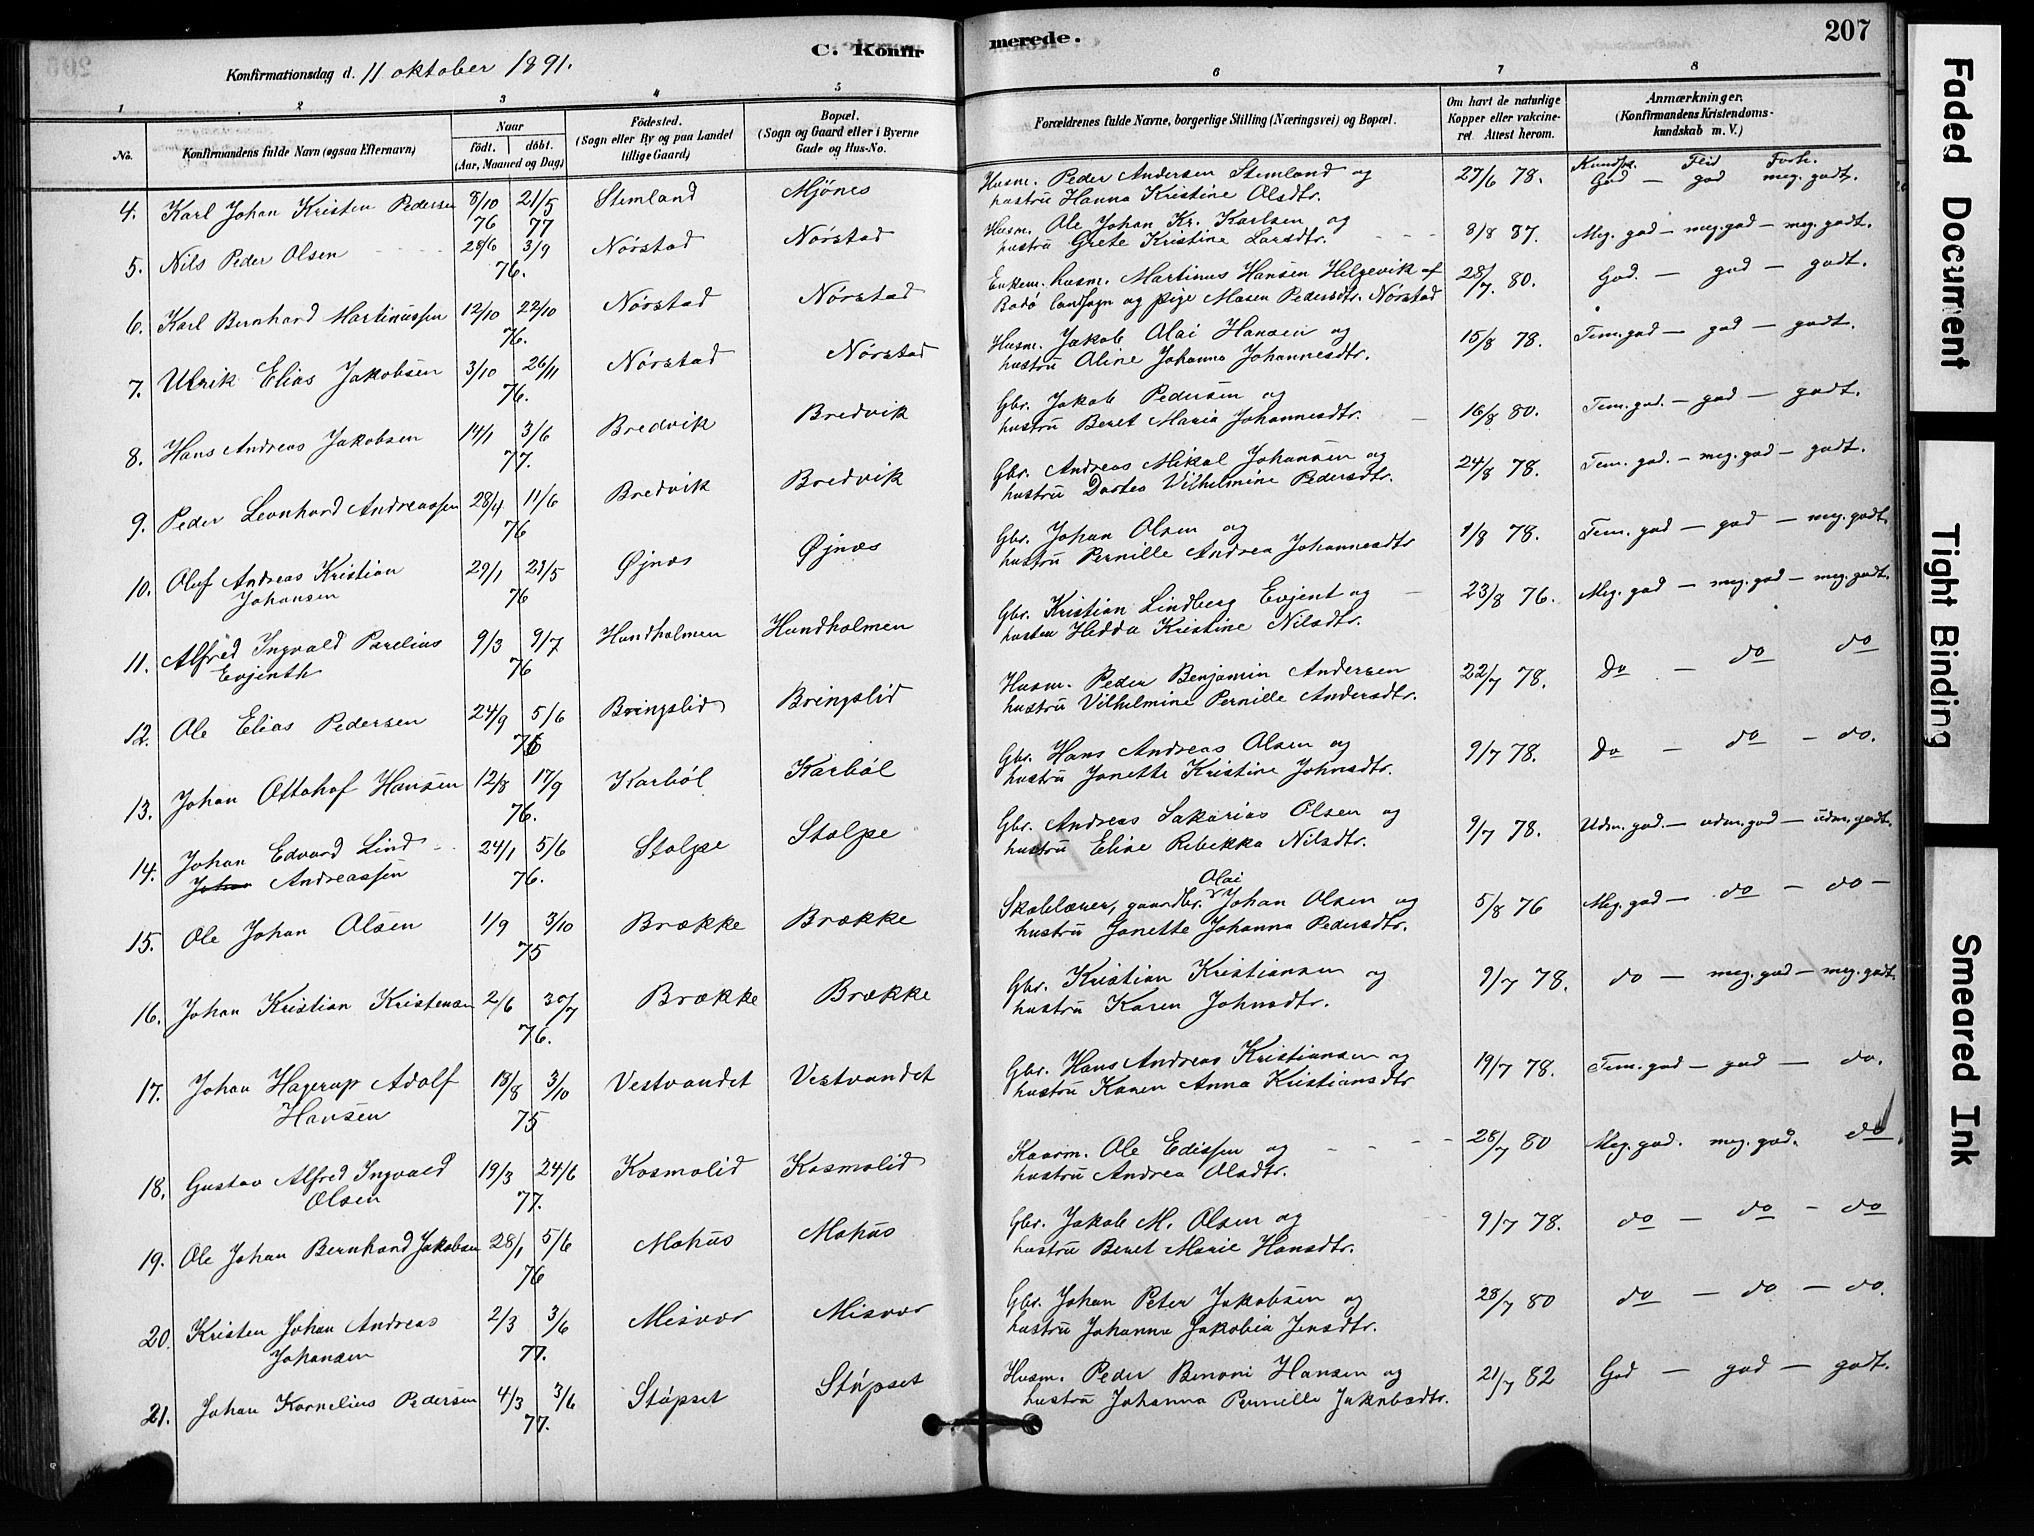 C. Konfirmerede.
207
Konfirmationsdag d. 11 oktober 1891.
1 2 3 4 5 6 7 8
No.
Konfirmandens fulde Navn (ogsaa Efternavn)
Naar
födt. döbt.
(Aar, Maaned og Dag)
Födested.
(Sogn eller By og paa Landet tillige Gaard)
Bopæl.
(Sogn og Gaard eller i Byerne Gade og Hus-No.
Forældrenes fulde Navne, borgerlige Stilling (Næringsvei) og Bopæl.
Om havt de naturlige Kopper eller vakcineret. Attest herom.
Anmærkninger.
(Konfirmandens Kristendomskundskab m. V.)
Kundsk. Flid Forh.
4. Karl Johan Kristen Pedersen 8/10 76 21/5 77 Stemland Mjønes Husm. Peder Andersen Stemland og hustru Hanna Kristine Olsdtr. 27/6 78. God — god meg. godt.
5. Nils Peder Olsen 28/6 3/9 76. Nørstad Nørstad Husm. Ole Johan Kr. Karlsen og hustru Grete Kristine Larsdtr. 8/8 87. Meg. god — meg. god — meg. godt.
6. Karl Bernhard Martinussen 12/10 22/10 76. Nørstad Nørstad Enkem. husm. Martinus Hansen Helgevik af Bodø landsogn og pige Maren Pedersdtr. Nørstad 28/7. 80. God. — god — godt.
7. Ulrik Elias Jakobsen 3/10 26/11 76. Nørstad Nørstad Husm. Jakob Olai Hansen og hustru Aline Johanna Johannesdtr. 15/8 78. Tem. god — god — godt.
8. Hans Andreas Jakobsen 14/1 3/6 77. Bredvik Bredvik Gbr. Jakob Pedersen og hustru Beret Maria Johannesdtr. 16/8 80. Tem. god. — god — godt.
9. Peder Leonhard Andreassen 28/4 11/6 76 Bredvik Bredvik Gbr. Andreas Mikal Johansen og hustru Dortea Vilhelmine Pedersdtr. 24/8 78. Tem. god. — meg. god — godt.
10. Oluf Andreas Kristian Johansen 29/1 21/5 76 Øjnes Øjnæs Gbr. Johan Olsen og hustru Pernille Andrea Johannesdtr 1/8 78. Tem. god — god — meg. godt.
11. Alfred Ingvald Parelius Evjenth 9/3 9/7 76 Hundholmen Hundholmen Gbr. Kristian Lindberg Evjent og hustru Hedda Kristine Nilsdtr. 23/8 76. Meg. god — meg. god — meg. godt.
12. Ole Elias Pedersen 24/9 5/6 76 Bringslid Bringslid Husm. Peder Benjamin Andersen hustru Vilhelmine Pernille Andersdtr. 22/7 78. Do — do do
13. Johan Ottohof Hansen 12/8 17/9 76. Karbøl Karbøl Gbr. Hans Andreas Olsen og hustru Janette Kristine Johnsdtr. 9/7 78. Do — do — do.
14. Johan Edvard Lind Johan Andreassen 24/1 5/6 76. Stolpe Stolpe Gbr. Andreas Sakarias Olsen og hustru Eline Rebekka Nilsdtr. 9/7 78. Udm. god. — udm. god — udm. godt.
15. Ole Johan Olsen 1/9 3/10 75 Brække Brække Skolelærer, gaardbr. Olai Johan Olsen og hustru Janette Johanna Pedersdtr. 5/8 76 Meg. god — do — do —
16. Johan Kristian Kristensen 2/6 30/7 76. Brække Brække Gbr. Kristian Kristiansen og hustru Karen Johnsdtr. 9/7 78. do — meg. god — meg. godt.
17. Johan Hagerup Adolf Hansen 18/8 3/10 75 Vestvandet Vestvandet Gbr. Hans Andreas Kristiansen og hustru Karen Anna Kristiansdtr 19/7 78. Tem. god — god — do.
18. Gustav Alfred Ingvald Olsen 19/3 24/6 77. Kosmolid Kosmolid Kaarm. Ole Edissen og hustru Andrea Olsdtr. 28/7 80 Meg. god. meg. god. do
19. Ole Johan Bernhard Jakobsen 28/1 5/6 76 Mohus Mohus Gbr. Jakob M. Olsen og hustru Beret Marie Hansdtr. 9/7 78. do — do — do
20. Kristen Johan Andreas Johansen 2/3 3/6 77. Misvær Misvær Gbr. Johan Peter Jakobsen og hustru Johanna Jakobia Jensdtr. 28/7 80 do — do — do.
21. Johan Kornelius Pedersen 4/3 3/6 77. Støpset Støpset Husm. Peder Benoni Hansen og hustru Johanna Pernille Jakobsdtr. 21/7 82 God — god — godt.
Faded Document
Tight Binding
Smeared Ink